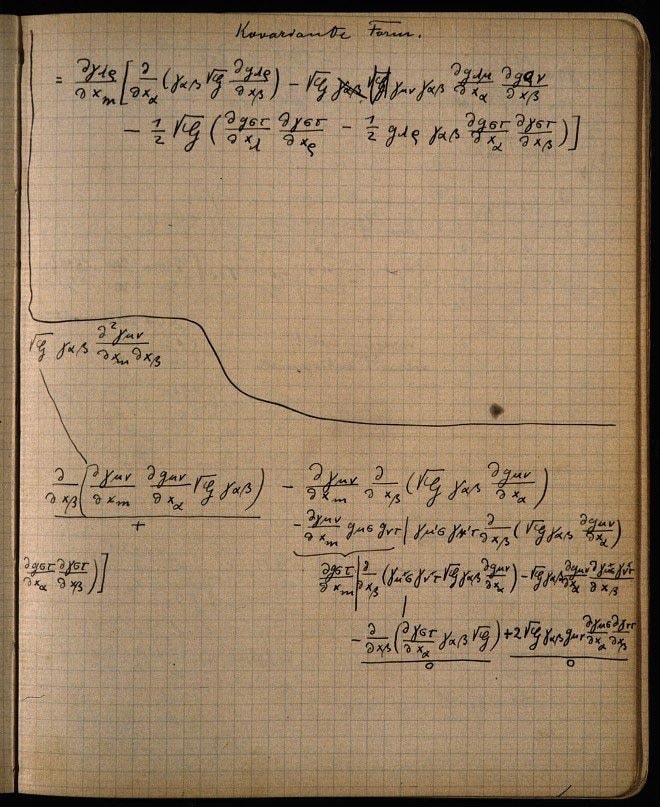 Kovariante Form.
= ∂γ_{iϱ}/∂x_m [ ∂/∂x_α (γ_{αβ} √G ∂g_{iϱ}/∂x_β) − √G γ_{μν} γ_{αβ} ∂g_{iμ}/∂x_α ∂g_{ϱν}/∂x_β
− 1/2 √G ( ∂g_{στ}/∂x_i ∂γ_{στ}/∂x_ϱ − 1/2 g_{iϱ} γ_{αβ} ∂g_{στ}/∂x_α ∂γ_{στ}/∂x_β ) ]
√G γ_{αβ} ∂²γ_{μν}/∂x_m ∂x_β
∂/∂x_β ( ∂γ_{μν}/∂x_m ∂g_{μν}/∂x_α √G γ_{αβ} ) − ∂γ_{μν}/∂x_m ∂/∂x_β ( √G γ_{αβ} ∂g_{μν}/∂x_α )
+
− ∂γ_{μν}/∂x_m g_{μσ} g_{ντ} | γ_{μ'σ} γ_{ν'τ} ∂/∂x_β ( √G γ_{αβ} ∂g_{μν}/∂x_α )
∂g_{στ}/∂x_α ∂γ_{στ}/∂x_β ) ]
∂g_{στ}/∂x_m | ∂/∂x_β ( γ_{μσ} γ_{ντ} √G γ_{αβ} ∂g_{μν}/∂x_α ) − √G γ_{αβ} ∂g_{μν}/∂x_α ∂γ_{μσ} γ_{ντ}/∂x_β
− ∂/∂x_β ( ∂γ_{στ}/∂x_α γ_{αβ} √G ) + 2 √G γ_{αβ} g_{μν} ∂γ_{μσ}/∂x_α ∂γ_{ντ}/∂x_β
0 0